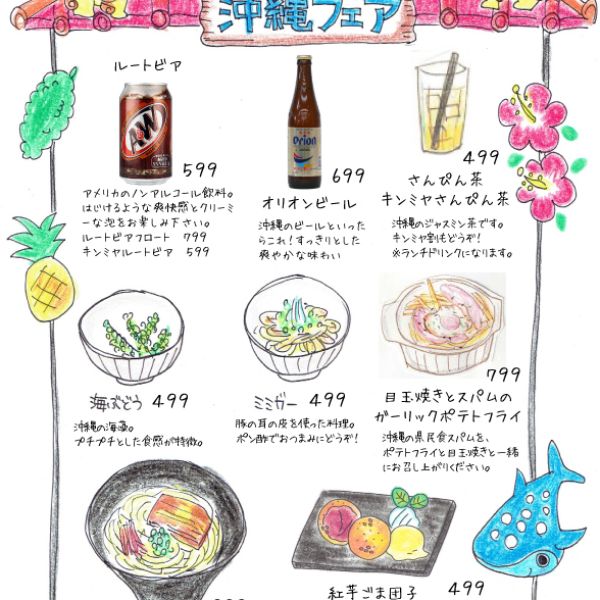 沖縄フェア
ルートビア
A&W
599
アメリカのノンアルコール飲料。
はじけるような爽快感とクリーミ
ーな泡をお楽しみ下さい。
ルートビアフロート 799
キンミヤルートビア 599
Orion
699
オリオンビール
沖縄のビールといった
らこれ!すっきりとした
爽やかな味わい
499
さんぴん茶
キンミヤさんぴん茶
沖縄のジャスミン茶です。
キンミヤ割もどうぞ!
※ランチドリンクになります。
海ぶどう 499
沖縄の海藻。
プチプチとした食感が特徴。
ミミガー 499
豚の耳の皮を使った料理。
ポン酢でおつまみにどうぞ!
799
目玉焼きとスパムの
ガーリックポテトフライ
沖縄の県民食スパムを、
ポテトフライと目玉焼きと一緒
にお召し上がりください。
紅芋ごま団子 499